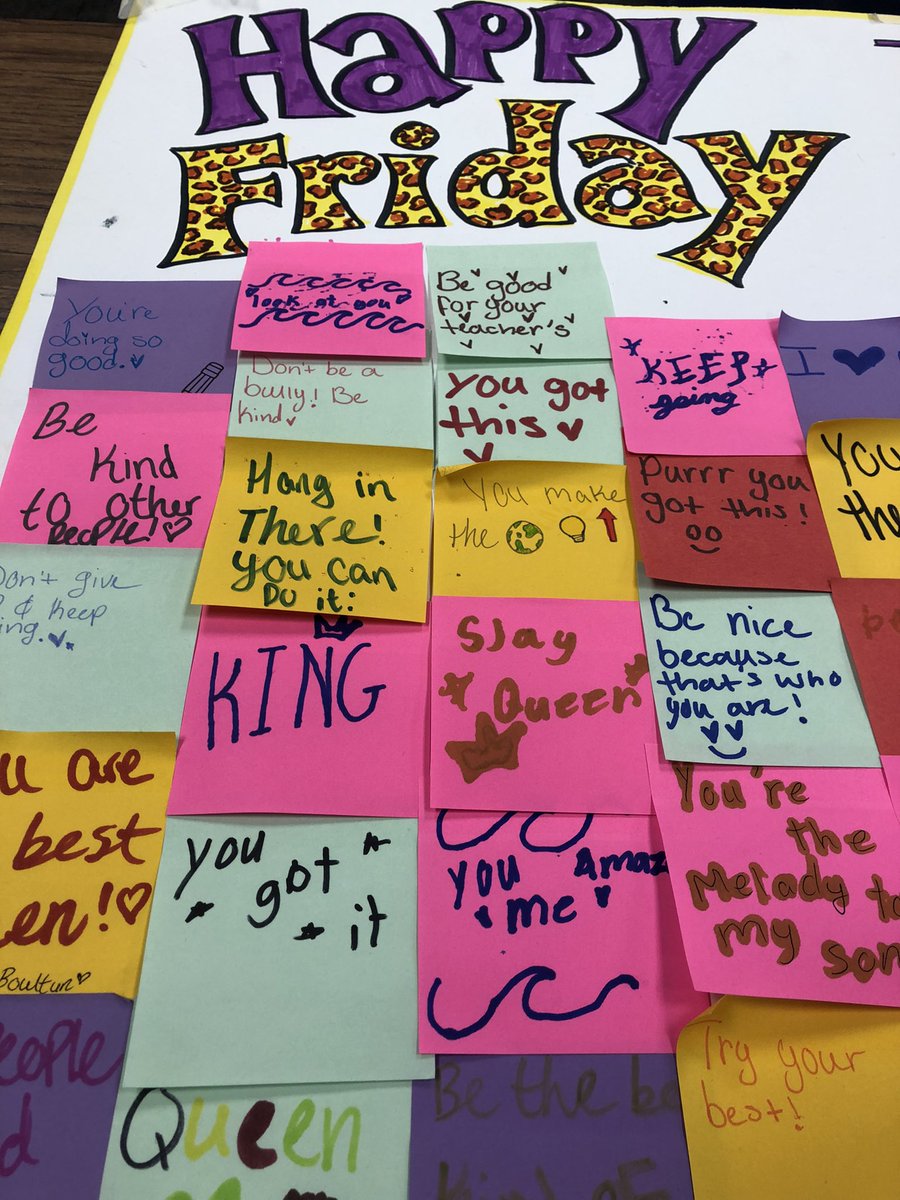 Happy
Friday
You're
doing so
good.
look at you
Be good
for your
teacher's
Don't be a
bully! Be
kind
You got
this
KEEP
going
I
Be
Kind
to other
People!
Hang in
There!
You can
Do it:
You make
the
Purrr you
got this!
You
the
Don't give
& keep
KING
Slay
Queen
Be nice
because
that's who
you are!
are
best
Boultun
You
got
it
You Amaz
me
You're
the
Melady to
my son
People
Queen
Be the be
Kind of
Try your
best!